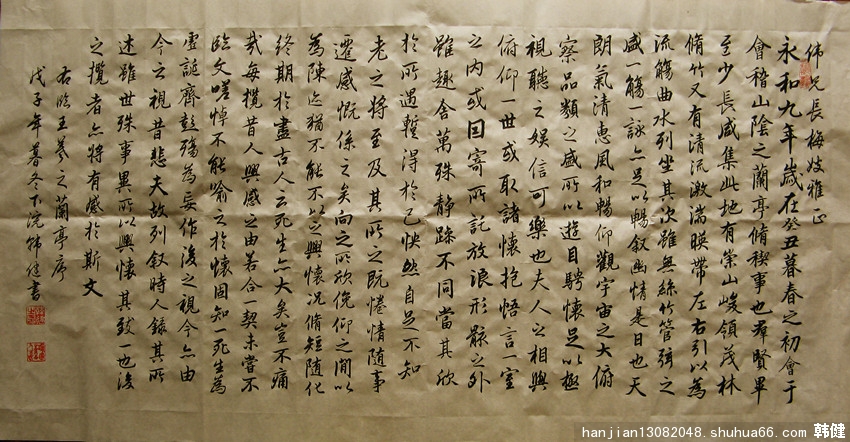 伟兄長梅妓雅正
永和九年歲在癸丑暮春之初會于
會稽山陰之蘭亭脩稧事也羣賢畢
至少長咸集此地有崇山峻領茂林
脩竹又有清流激湍暎帶左右引以為
流觴曲水列坐其次雖無絲竹管弦之
盛一觴一詠亦足以暢叙幽情是日也天
朗氣清惠風和暢仰觀宇宙之大俯
察品類之盛所以遊目騁懷足以極
視聽之娱信可樂也夫人之相與
俯仰一世或取諸懷抱悟言一室
之内或因寄所託放浪形骸之外
雖趣舍萬殊靜躁不同當其欣
於所遇蹔得於己怏然自足不知
老之將至及其所之既惓情隨事
遷感慨係之矣向之所欣俛仰之閒以
為陳迹猶不能不以之興懷况脩短隨化
終期於盡古人云死生亦大矣豈不痛
哉每攬昔人興感之由若合一契未嘗不
臨文嗟悼不能喻之於懷固知一死生為
虛誕齊彭殤為妄作後之視今亦由
今之視昔悲夫故列叙時人録其所
述雖世殊事異所以興懷其致一也後
之攬者亦將有感於斯文
右臨王羲之蘭亭序
戊子年暮冬下浣韩健書
hanjian13082048.shuhua66.com 韩健